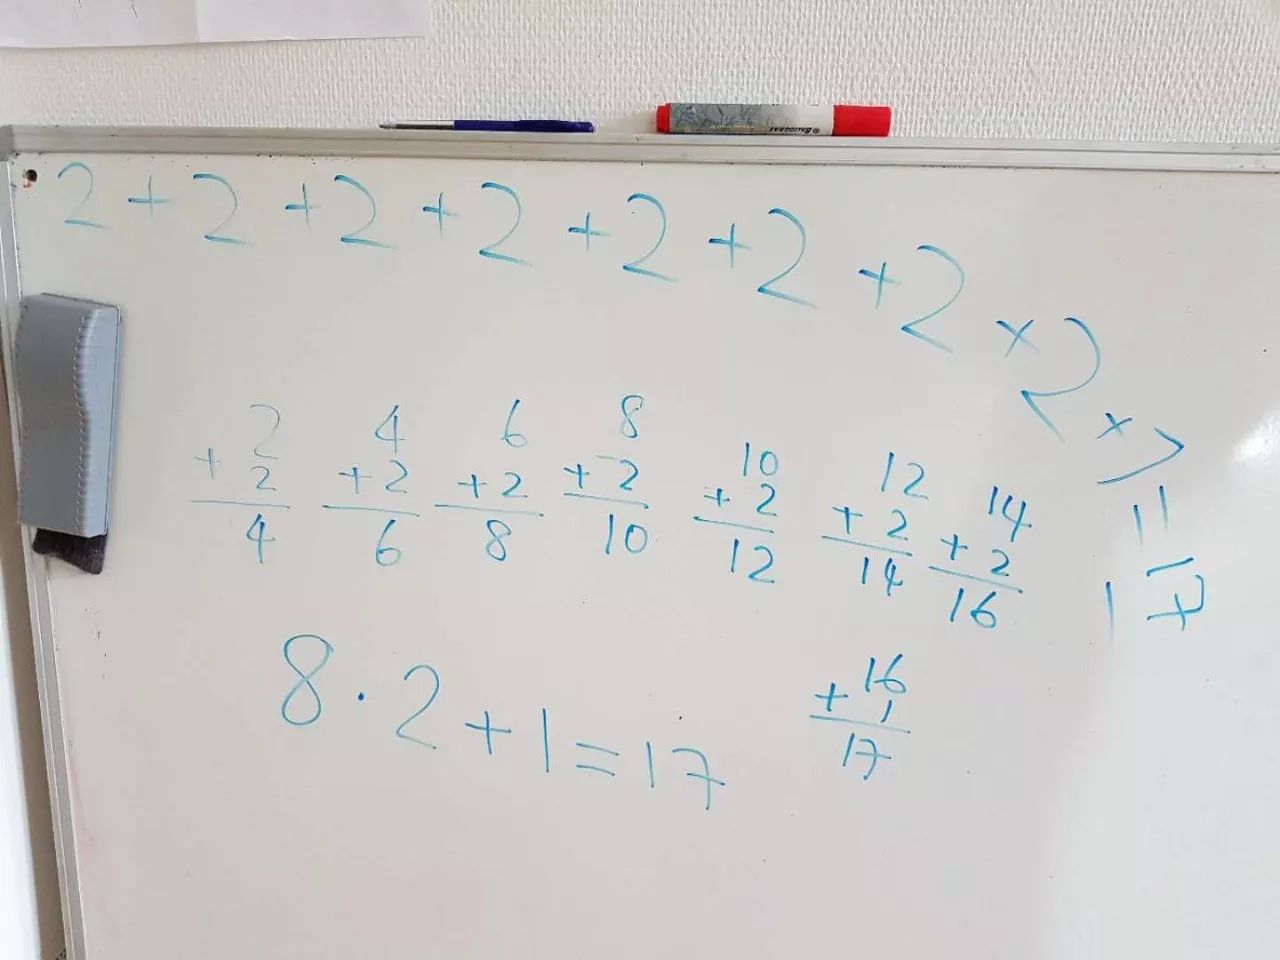 2 + 2 + 2 + 2 + 2 + 2 + 2 × 2 × 1
= 17
2 + 2 = 4
4 + 2 = 6
6 + 2 = 8
8 + 2 = 10
10 + 2 = 12
12 + 2 = 14
14 + 2 = 16
8 · 2 + 1 = 17
16 + 1 = 17
BALLOGRAF